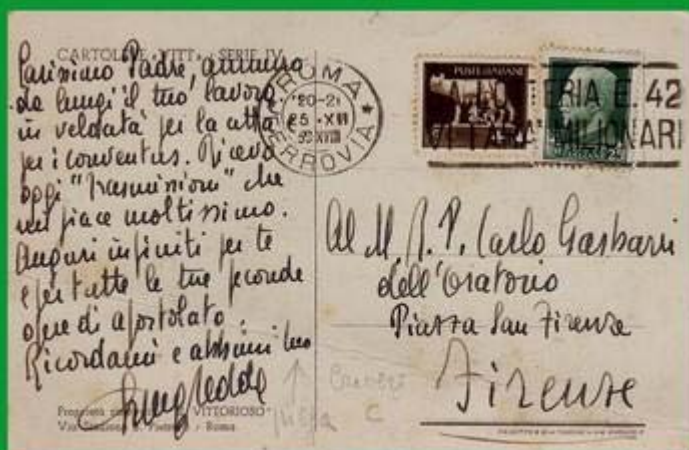 CARTOLINE VITT. - SERIE IV
Carissimo Padre, ammiro
da lungi il tuo lavoro
in velocità per la
per i conventus. Ricevo
oggi "Trasmissioni" che
mi piace moltissimo.
Auguri infiniti per te
e per tutte le tue feconde
opere di apostolato.
Ricordami e abbimi tuo
Proprietà "IL VITTORIOSO"
Via - Roma
ROMA
20-21
FERROVIA
POSTE ITALIANE
E. 42
MILIONARI
Al M. R. P. Carlo Gasbarri
dell'Oratorio
Piazza San Firenze
Firenze